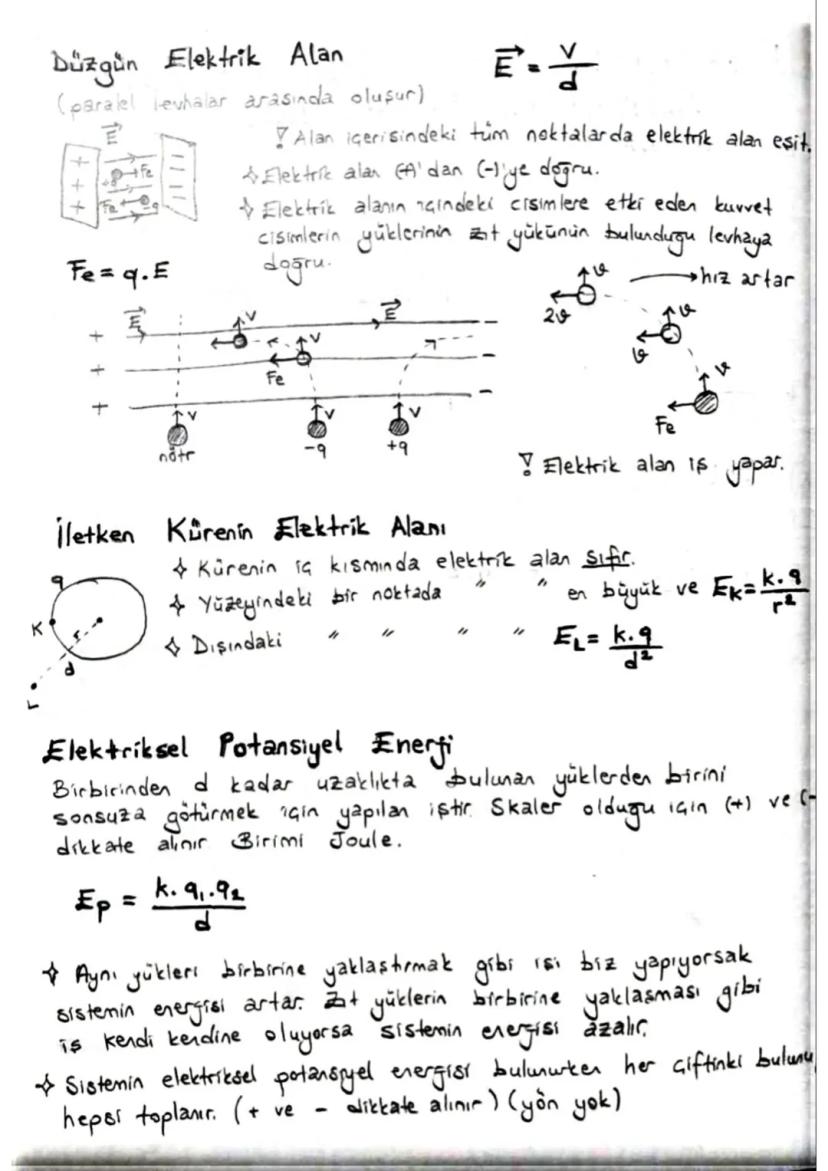 Düzgün Elektrik Alan
E = V / d
(paralel levhalar arasında oluşur)
E
! Alan içerisindeki tüm noktalarda elektrik alan eşit.
+ + + +
- - - -
+q Fe
Fe -q
✧ Elektrik alan (+)'dan (-)'ye doğru.
✧ Elektrik alanın içindeki cisimlere etki eden kuvvet
cisimlerin yüklerinin zıt yükünün bulunduğu levhaya
doğru.
Fe = q.E
ϑ
2ϑ
hız artar
ϑ
ϑ
ϑ
Fe
+ E V E -
+ V Fe -
+ V V V -
nötr -q +q
! Elektrik alan iş yapar.
İletken Kürenin Elektrik Alanı
✧ Kürenin iç kısmında elektrik alan sıfır.
✧ Yüzeyindeki bir noktada " " en büyük ve EK = k.q / r²
✧ Dışındaki " " " " EL = k.q / d²
q
K
r
d
L
Elektriksel Potansiyel Enerji
Birbirinden d kadar uzaklıkta bulunan yüklerden birini
sonsuza götürmek için yapılan iştir. Skaler olduğu için (+) ve (-
dikkate alınır Birimi Joule.
Ep = k.q₁.q₂ / d
✧ Aynı yükleri birbirine yaklaştırmak gibi işi biz yapıyorsak
sistemin energisi artar. Zıt yüklerin birbirine yaklaşması gibi
iş kendi kendine oluyorsa sistemin energisi azalır.
✧ Sistemin elektriksel potansiyel energisi bulunurken her çiftinki bulunu
hepsi toplanır. (+ ve - dikkate alınır) (yön yok)